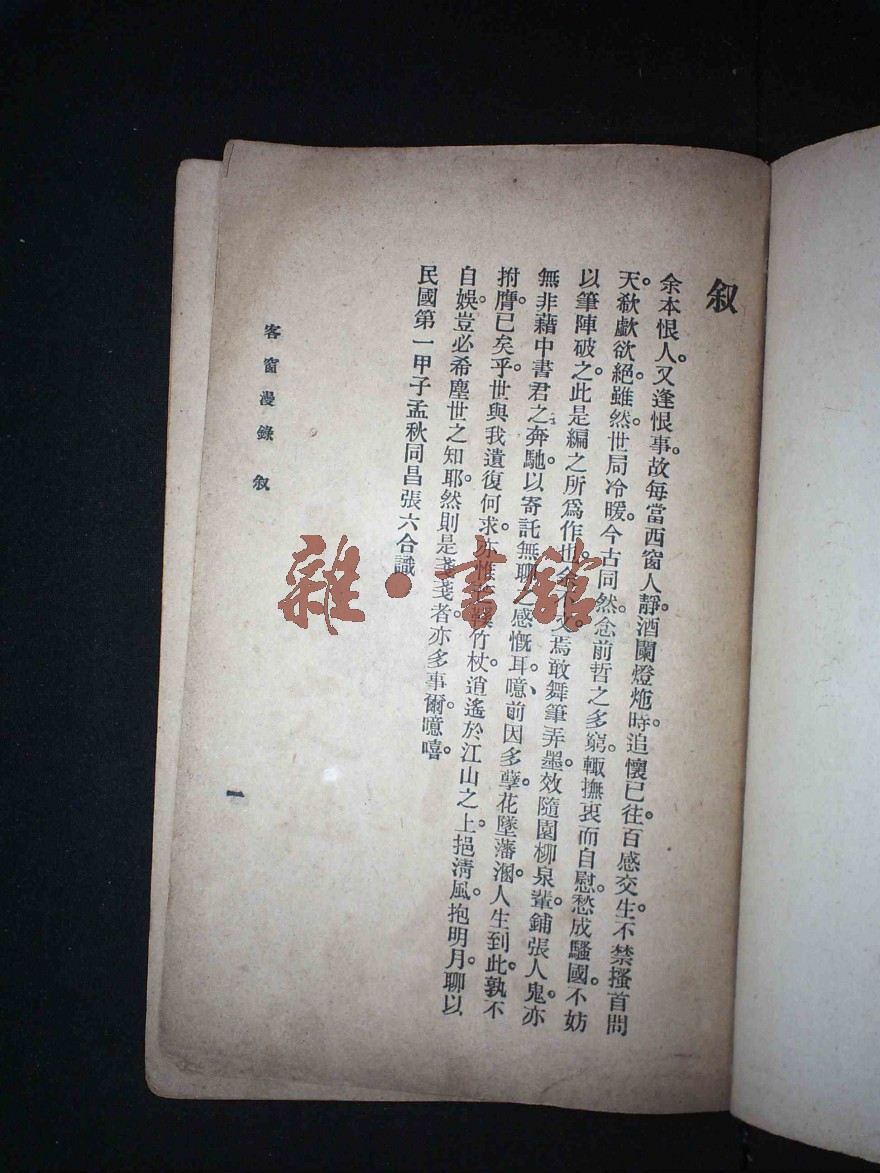 叙
余本恨人。又逢恨事。故每當西窗人靜。酒闌燈灺。時追懷已往。百感交生。不禁搔首問
天。欷歔欲絕。雖然世局冷暖。今古同然。念前哲之多窮。輙撫衷而自慰。愁成騷國。不妨
以筆陣破之。此是編之所爲作也。余不文。焉敢舞筆弄墨。效隨園柳泉輩。鋪張人鬼。亦
無非藉中書君之奔馳。以寄託無聊之感慨耳。噫前因多孽。花墜藩溷。人生到此。孰不
拊膺。已矣乎。世與我遺。復何求。亦惟 竹杖。逍遙於江山之上。挹清風。抱明月。聊以
自娛。豈必希塵世之知耶。然則是戔戔者。亦多事爾。噫嘻。
民國第一甲子孟秋同昌張六合識
客窗漫錄 叙
一
雜·書館